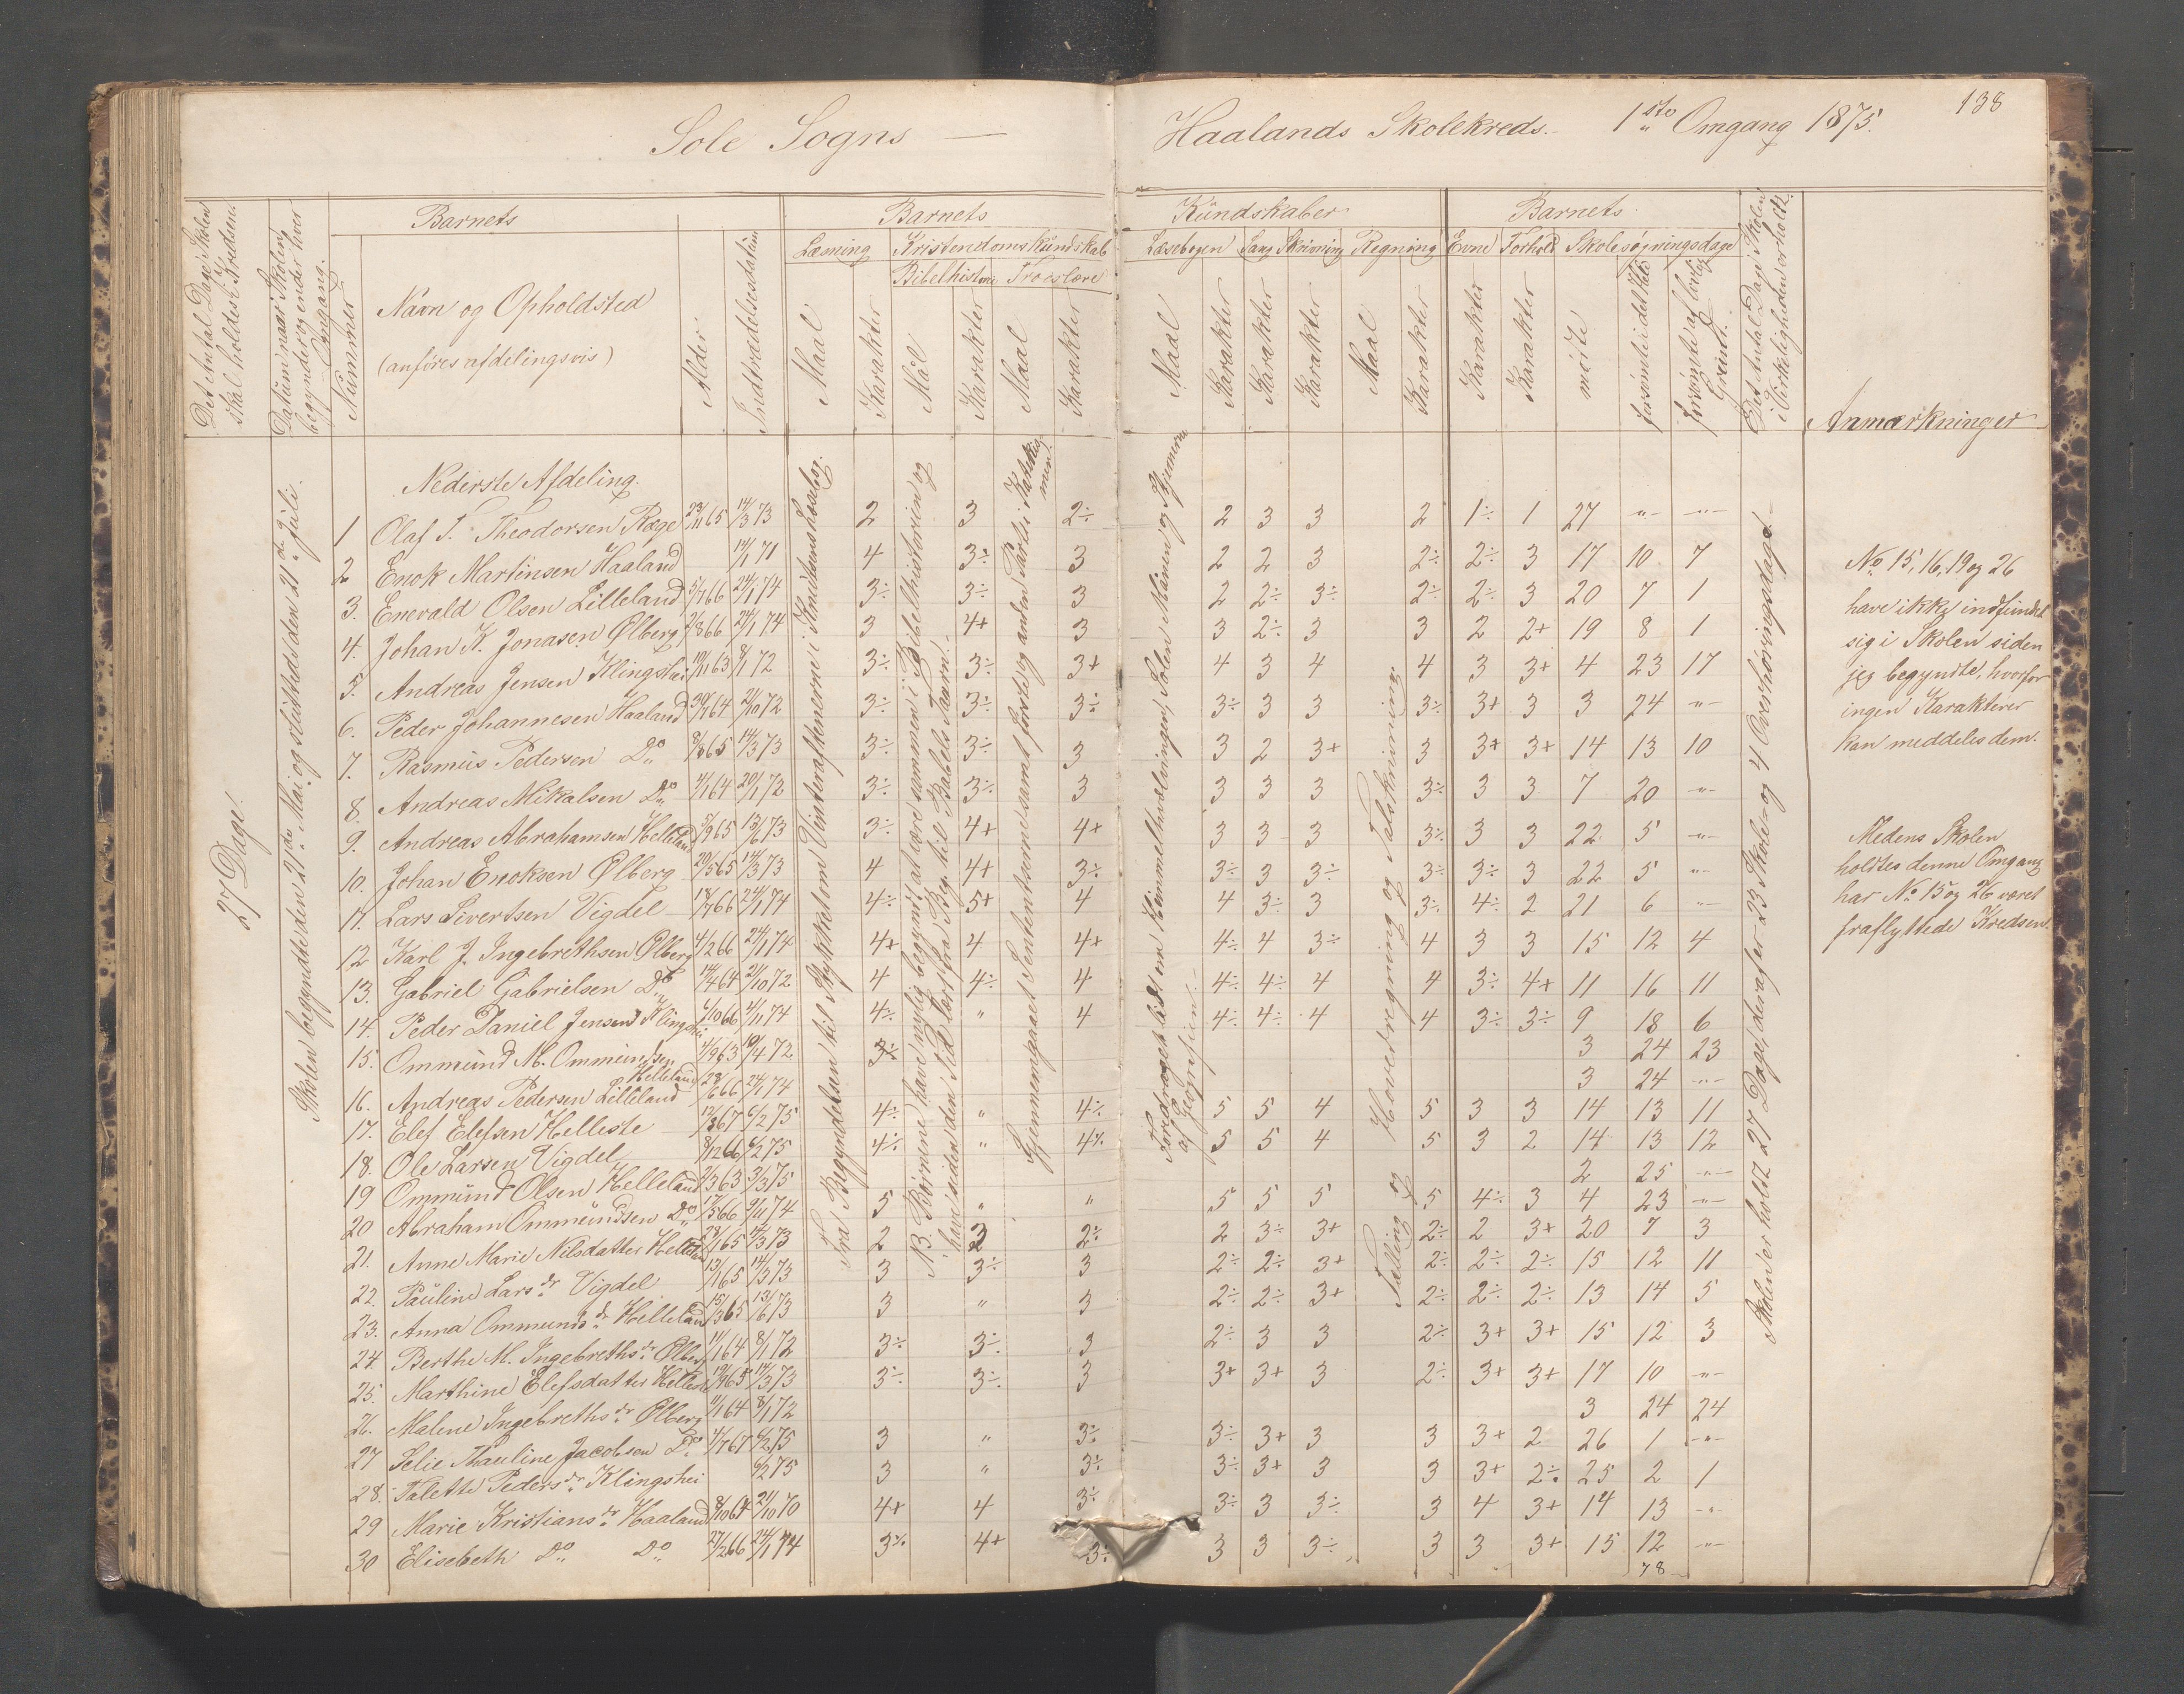 138
Sole Sogns —
Haalands Skolekreds. — 1ste Omgang 1875.
Det Antal Dage Skolen skal holdes i Kredsen.
Datum naar Skolen begynder og ender hver Omgang.
Nummer
Barnets
Navn og Opholdsted
(anføres afdelingsvis)
Alder
Indtrædelsesdatum
Barnets
Læsning
Kristendomskündskab
Bibelhistorie
Troeslære
Maal
Karakter
Mål
Karakter
Maal
Karakter
Kündskaber
Læsebogen
Sang
Skrivning
Regning
Maal
Karakter
Karakter
Karakter
Maal
Karakter
Barnets
Evne
Forhold
Skolesøgningsdage
Karakter
Karakter
mødte
forsømte i det Hele
forsømte af lovlig Grund.
Det Antal Dage Skolen i Virkeligheden er holdt.
Anmærkninger
27 Dage.
Skolen begyndte den 21de Mai og sluttede den 21de Juli.
Fra Begyndelsen til Stykket om Vinteraftenerne i Knudsens Læsebog.
NB. Børnene have nylig begyndt at læse sammen i Bibelhistorien og
have siden den Tid læst fra Beg. til Babels Taarn.
Gjennemgaaet Sententserne samt første og anden Part i Katekismen.
Foredraget lidt om Himmelhvælvingen, Solen Månen og Stjernerne
af Geografien.
Tælling og Hovedregning og Talskrivning.
Skolen er holdt 27 Dage, deraf er 23 Skole- og 4 Overhøringsdage.
Nederste Afdeling.
1 Olaf T. Theodorsen Ræge 23/11 65 14/3 73 2 3 2÷ 2 3 3 2 1÷ 1 27 „ „
2 Enok Martinsen Haaland 14/1 71 4 3÷ 3 2 2 3 2÷ 2÷ 3 17 10 7
3. Enevald Olsen Lilleland 5/7 66 24/1 74 3÷ 3÷ 3 2 2÷ 3÷ 2÷ 2÷ 3 20 7 1
4. Johan K. Jonasen Ølberg 2/8 66 24/1 74 3 4+ 3 3 2÷ 3 3 2 2+ 19 8 1
5. Andreas Jensen Klingshei 19/11 63 8/1 72 3÷ 3÷ 3+ 4 3 4 4 3 3+ 4 23 17
6. Peder Johannesen Haaland 30/9 64 21/10 72 3÷ 3÷ 3÷ 3÷ 3 3 3÷ 3+ 3 3 24 „
7. Rasmüs Pedersen Do 8/3 65 14/3 73 3÷ 3÷ 3 3 2 3+ 3 3+ 3+ 14 13 10
8. Andreas Mikalsen Do 4/1 64 20/1 72 3÷ 3÷ 3 3 3 3 3÷ 3 3 7 20 „
9. Andreas Abrahamsen Helleland 5/9 65 13/6 73 3÷ 4+ 4+ 3 3 3 3÷ 3 3 22 5 „
10. Johan Enoksen Ølberg 29/5 65 14/3 73 4 4+ 3÷ 3÷ 3 3÷ 3÷ 3÷ 3 22 5 „
11. Lars Sivertsen Vigdel 17/7 66 24/1 74 4÷ 5+ 4 4 3÷ 3 3÷ 4÷ 2 21 6 „
12 Karl J. Ingebrethsen Ølberg 4/2 66 24/1 74 4+ 4 4+ 4÷ 4 3÷ 4 3 3 15 12 4
13. Gabriel Gabrielsen Do 14/4 64 21/10 72 4 4÷ 4 4÷ 4÷ 4 4 3÷ 4+ 11 16 11
14. Peder Daniel Jensen Klingshei 6/10 66 4/11 74 4÷ „ 4 4÷ 4÷ 4 4 3÷ 3÷ 9 18 6
15. Ommünd M. Ommündsen Helleland 4/9 63 19/4 72 3÷ 3 24 23
16. Andreas Pedersen Lilleland 28/6 66 24/1 74 3 24 „
17. Elef Elefsen Helleste 12/3 67 6/2 75 4÷ „ 4÷ 5 5 4 5 3 3 14 13 11
18. Ole Larsen Vigdel 8/12 66 6/2 75 4÷ „ 4÷ 5 5 4 5 3 2 14 13 12
19 Ommünd Olsen Helleland 2/3 63 3/3 75 2 25 „
20 Abraham Ommündsen Do 17/5 66 9/11 74 5 „ „ 5 5 5 5 4÷ 3 4 23 „
21. Anne Marie Nilsdatter Helleland 23/1 65 14/3 73 2 3 2÷ 2 3÷ 3+ 2÷ 2 3+ 20 7 3
22. Pauline Larsdr Vigdel 13/1 65 14/3 73 3 3÷ 3 2÷ 2÷ 3+ 2÷ 2÷ 2÷ 15 12 11
23. Anna Ommundsdr Helleland 15/3 65 13/6 73 3 „ 3 2÷ 2÷ 3+ 2÷ 2÷ 2÷ 13 14 5
24. Berthe M. Ingebrethsdr Ølberg 11/1 64 8/1 72 3÷ 3÷ 3 2÷ 3 3 2÷ 3+ 3+ 15 12 3
25. Marthine Elefsdatter Helleste 19/9 65 14/3 73 3÷ 3÷ 3 3+ 3+ 3 2÷ 3+ 3+ 17 10 „
26. Malene Ingebrethsdr Ølberg 11/1 64 8/1 72 3 24 24
27 Selie Thauline Jacobsen Do 4/7 67 6/2 75 3 „ 3÷ 3÷ 3+ 3 3 3+ 2 26 1 „
28. Talette Pedersdr Klingshei 6/2 75 3 „ 3÷ 3÷ 3+ 3 3 3+ 2÷ 25 2 1
29 Marie Kristiansdr Haaland 8/10 64 21/10 70 4+ 4 3÷ 3÷ 3 3÷ 3 4 3+ 14 13 „
30 Elisebeth Do Do 27/2 66 24/1 74 3÷ 4+ 3÷ 3 3 3÷ 3 3 3+ 15 12 „
78
No 15, 16, 19 og 26
have ikke indfundet
sig i Skolen siden
jeg begyndte, hvorfor
ingen Karakterer
kan meddeles dem.
Medens Skolen
holdtes denne Omgang
har No 15 og 26 været
fraflyttede Kredsen.